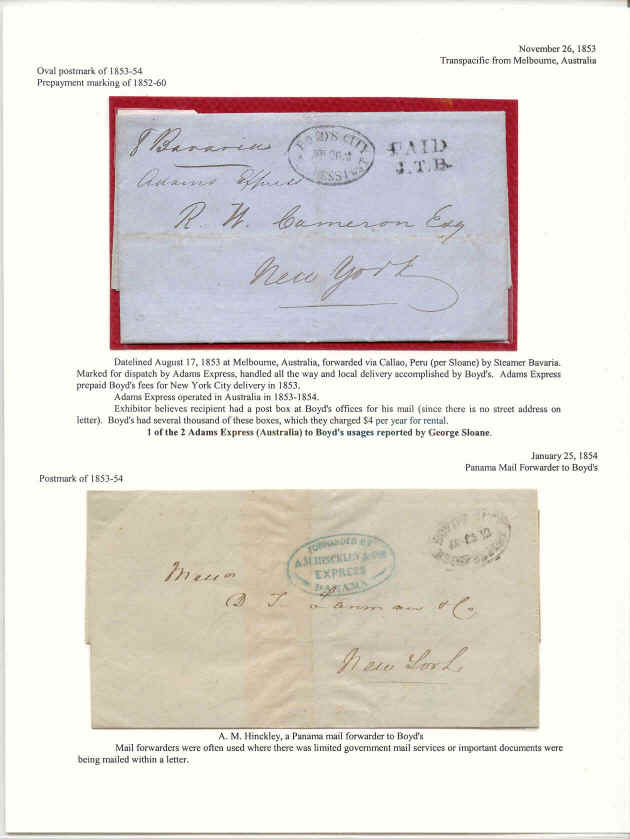 November 26, 1853
Transpacific from Melbourne, Australia
Oval postmark of 1853-54
Prepayment marking of 1852-60
BOYD'S CITY
PAID
J.T.B.
Bavaria
Adams Express
R. W. Cameron Esq
New York
Datelined August 17, 1853 at Melbourne, Australia, forwarded via Callao, Peru (per Sloane) by Steamer Bavaria.
Marked for dispatch by Adams Express, handled all the way and local delivery accomplished by Boyd's. Adams Express
prepaid Boyd's fees for New York City delivery in 1853.
Adams Express operated in Australia in 1853-1854.
Exhibitor believes recipient had a post box at Boyd's offices for his mail (since there is no street address on
letter). Boyd's had several thousand of these boxes, which they charged $4 per year for rental.
1 of the 2 Adams Express (Australia) to Boyd's usages reported by George Sloane.
January 25, 1854
Panama Mail Forwarder to Boyd's
Postmark of 1853-54
FORWARDED BY
A.M. HINCKLEY & CO'S
EXPRESS
PANAMA
Messrs
& Co
New York
A. M. Hinckley, a Panama mail forwarder to Boyd's
Mail forwarders were often used where there was limited government mail services or important documents were
being mailed within a letter.